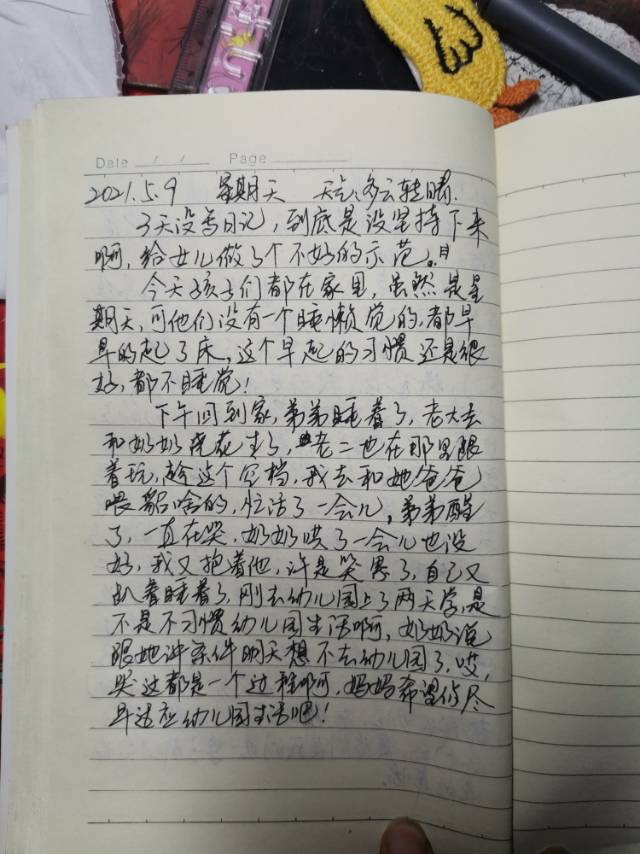 Date / / Page
2021.5.9 星期天 天气:多云转晴.
3天没写日记,到底是没坚持下来
啊,给女儿做了个不好的示范。
今天孩子们都在家里,虽然是星
期天,可他们没有一个睡懒觉的,都早
早的起了床,这个早起的习惯还是很
好,都不睡觉!
下午回到家,弟弟睡着了,老大去
和奶奶浇花生了,老二也在那里跟
着玩,趁这个空档,我去和她爸爸
喂貂啥的,忙活了一会儿,弟弟醒
了,一直在哭,奶奶哄了一会儿也没
好,我又抱着他,许是哭累了,自己又
趴着睡着了,刚去幼儿园上了两天学,是
不是不习惯幼儿园生活啊,奶奶说
跟她讲条件明天想不去幼儿园了,哎,
哭这都是一个过程啊,妈妈希望你尽
早适应幼儿园生活吧!